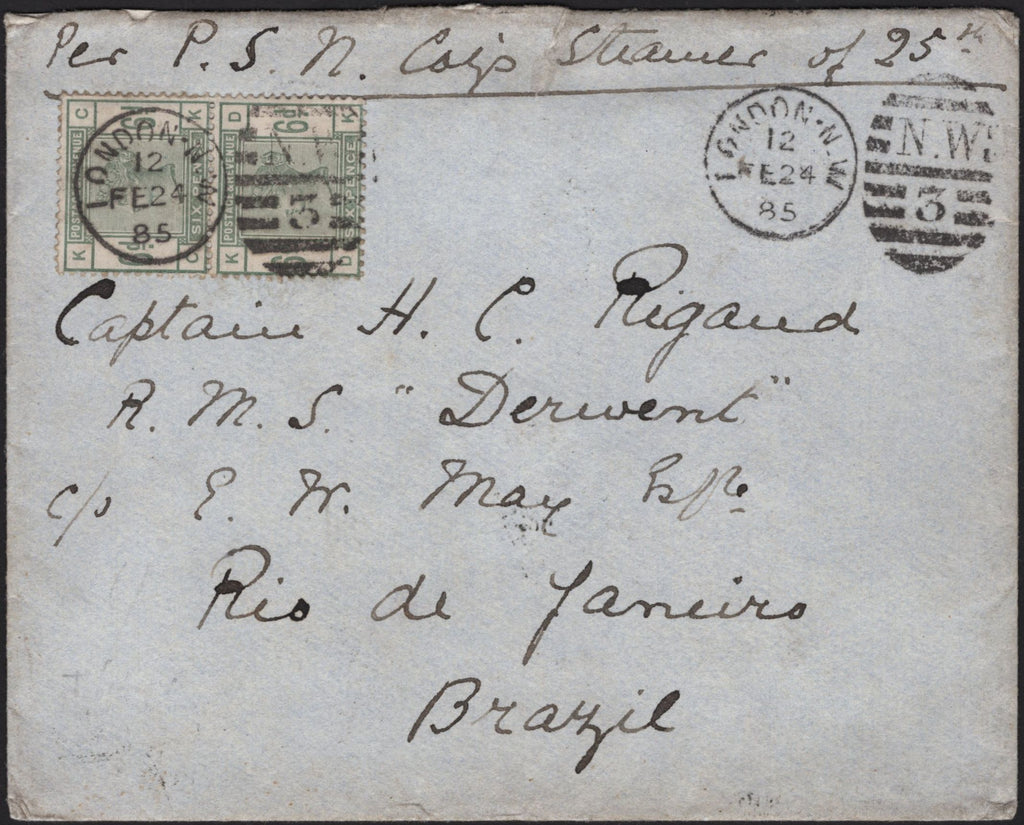 Per P. S. N. Coy's Steamer of 25th
C D K
POSTAGE & REVENUE
SIXPENCE
6d
K D
LONDON·N.W
12
FE24
85
N.W.
3
LONDON·N.W
12
FE24
85
N.W.
3
Captain H. C. Rigaud
R. M. S. "Derwent"
c/o E. W. May Esqre.
Rio de Janeiro
Brazil